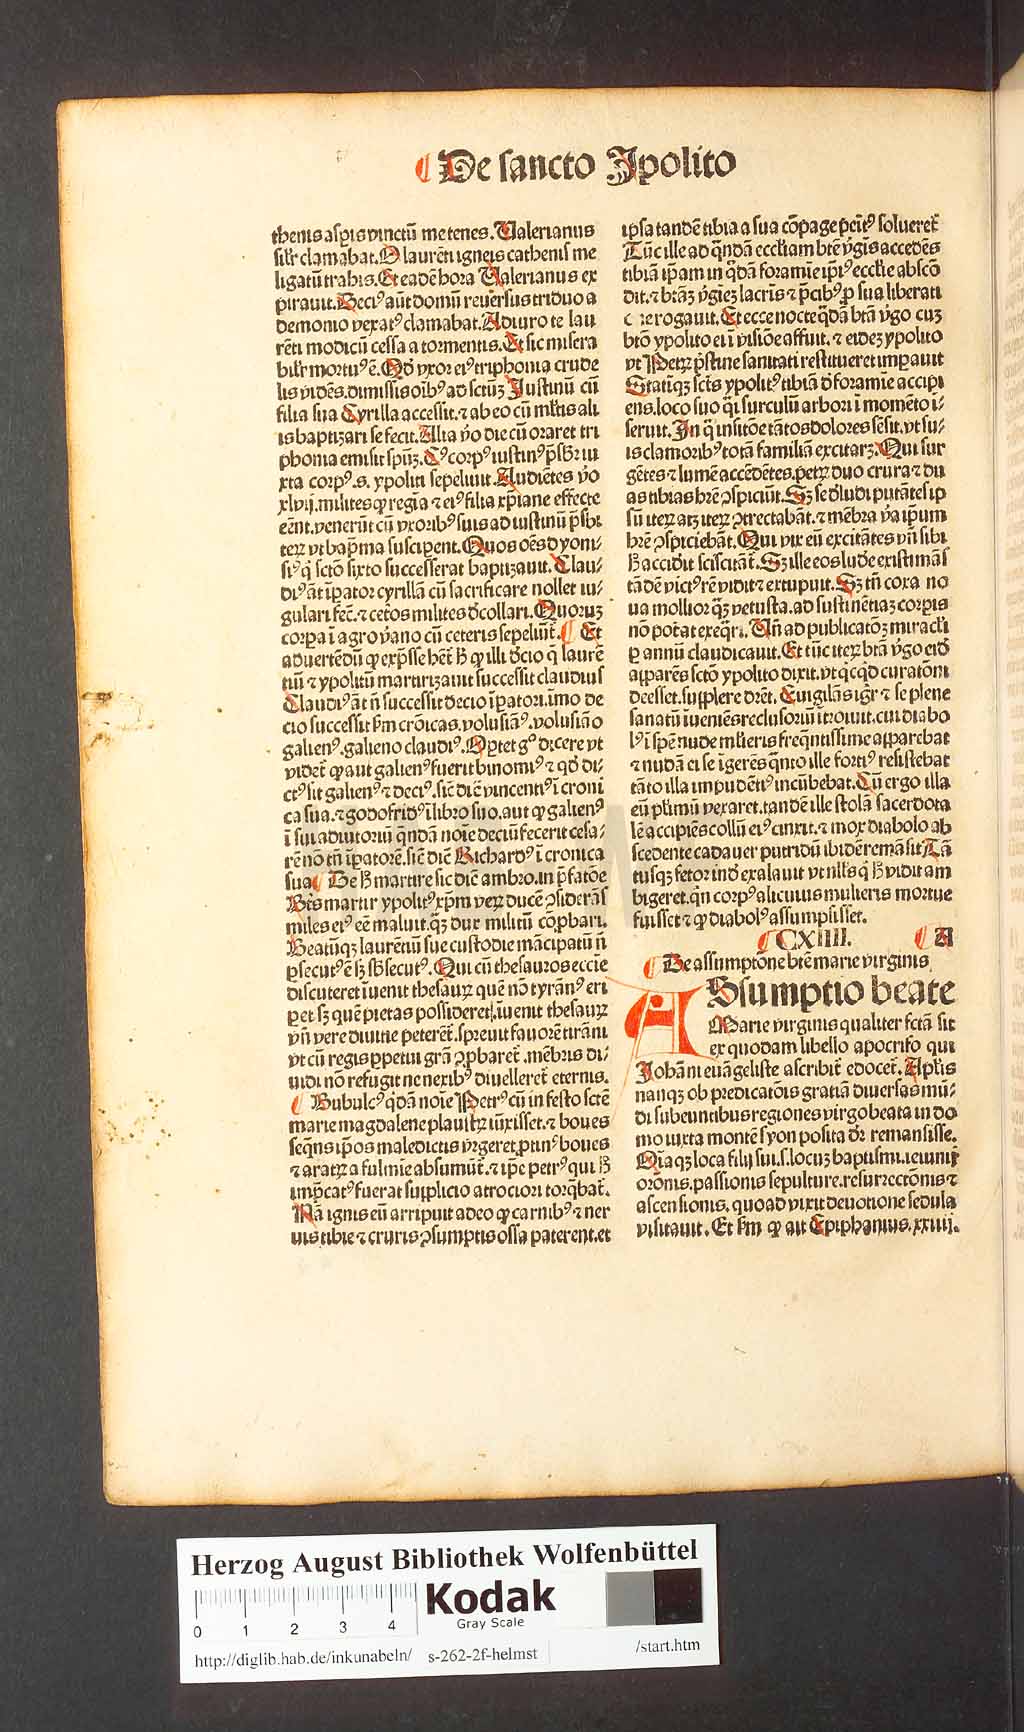 ¶ De sancto Ipolito
thenis asꝑis vinctū me tenes. Valerianus
silr̄ clamabat. O laurēti igneis cathenis me
ligatū trahis. Et eadē hora Valerianus ex
pirauit. Deciꝰ aūt domū reuersus triduo a
demonio vexatꝰ clamabat. Adiuro te lau
rēti modicū cessa a tormentis. Et sic misera
bilr̄ mortuꝰ ē. Qd̓ vxor eiꝰ triphonia crude
lis vidēs. dimissis oībꝰ ad sctūꝫ Iustinū cū
filia sua Cyrilla accessit. ⁊ ab eo cū mltis ali
is baptizari se fecit. Alia v̓o die cū oraret tri
phonia emisit spūꝫ. Cꝰ corpꝰ iustinꝰ p̄sbr̄ iu
xta corpꝰ. s. ypoliti sepeliuit. Audiētes v̓o
xlvij. milites ꝙ regīa ⁊ eiꝰ filia xp̄iane effecte
eēnt. venerūt cū vxoribꝰ suis ad iustinū p̄sbi
teꝝ vt bapt̄ma susciperent. Quos oēs dyoni-
siꝰ q̇ sctō sixto successerat baptizauit. Clau-
diꝰ āt īpator cyrillā cū sacrificare nollet iu-
gulari fec̄. ⁊ cetos milites d̓collari. Quoruꝫ
corpa ī agro v̓ano cū ceteris sepeliunt̄. ¶ Et
aduertēdū ꝙ exp̄sse hēt̄ hͦ ꝙ illi d̓cio q̇ laurē
tiū ⁊ ypolitū martirizauit successit claudius
Claudiꝰ āt nō successit decio īpatori. īmo de
cio successit scdm̄ crōicas. volusiāꝰ. volusiāo
galienꝰ. galieno claudiꝰ. Optet gͦ dicere vt
videt̄ ꝙ aut galienꝰ fuerit binomiꝰ ⁊ qd̓ di-
ctꝰ sit galienꝰ ⁊ deciꝰ. sic̄ dic̄ vincentiꝰ ī croni
ca sua. ⁊ godofridꝰ ī libro suo. aut ꝙ galienꝰ
ī sui adiutoriū q̄ndā noīe deciū fecerit cesa-
rē nō tn̄ īpatorē. sic̄ dic̄ Richardꝰ ī cronica
sua ¶ De hͦ martire sic dic̄ ambro. in p̄fatōe
Bt̄s martir ypolitꝰ xp̄m veꝝ ducē ꝯsiderās
miles eiꝰ eē maluit. q̄ꝫ dux militū cōprobari.
Beatūqꝫ laurētiū sue custodie mācipatū nō
ꝑsecutꝰ ē sꝫ sb̄secutꝰ. Qui cū thesauros eccīe
discuteret īuenit thesauꝝ quē nō tyrānꝰ eri
peret sꝫ quē pietas possideret. īuenit thesauꝝ
vn̄ vere diuitie peterēt. spreuit fauorē tirāni
vt cū regis ꝑpetui grā ꝯprobaret̄. mēbris di-
uidi nō refugit ne nexibꝰ diuelleret̄ eternis.
¶ Bubulcꝰ q̇dā noīe Petrꝰ cū in festo sctē
marie magdalene plaustꝝ iūxisset. ⁊ boues
seq̄ns ip̄os maledictis vrgeret. ꝓtinꝰ boues
⁊ aratꝝ a fulmīe absumūt̄. ⁊ ip̄e petrꝰ qui hͦ
imp̄catꝰ fuerat supplicio atrociori torq̄bat̄.
Nā ignis eū arripuit adeo ꝙ carnibꝰ ⁊ ner
uis tibie ⁊ cruris ꝯsumptis ossa paterent. et
ip̄sa tandē tibia a sua cōpage pēitꝰ solueret̄
Tūc ille ad q̄ndā eccl'iam btē v̓gis accedēs
tibiā ip̄am in q̇dā foramīe ip̄iꝰ eccl'ie abscō
dit. ⁊ btāꝫ v̓gieꝫ lacr̄is ⁊ p̄cibꝰ ꝓ sua liberati
one rogauit. Et ecce nocte q̇dā btā v̓go cuꝫ
btō ypolito ei ī visiōe affuit. ⁊ eideꝫ ypolito
vt Petꝝ p̄stine sanitati restitueret imꝑauit
Statiqꝫ sctꝰ ypolitꝰ tibiā d̓ foramīe accipi
ens. loco suo q̇si surculū arbori ī momēto i-
seruit. In q̇ insitōe tātos dolores sēsit. vt su-
is clamoribꝰ totā familiā excitarꝫ. Qui sur
gētes ⁊ lumē accēdētes. petꝝ duo crura ⁊ du
as tibias hr̄e ꝯspiciūt. Sꝫ se d̓ludi putātes ip
sū iteꝝ atqꝫ iteꝝ ꝯtrectabāt. ⁊ mēbra v̓a ip̄um
hr̄e ꝯspiciebāt. Qui vix eū excitātes vn̄ sibi
hͦ accidit sciscitāt̄. Sꝫ ille eos lude existimās
tādē victꝰ rē vidit ⁊ extupuit. Sꝫ tn̄ coxa no
ua mollior q̄ꝫ vetusta. ad sustinētiaꝫ corpis
nō pot̄at exeq̇ri. Vn̄ ad publicatōꝫ miracl'i
ꝑ annū claudicauit. Et tūc iteꝝ btā v̓go eid̓
apparēs sctō ypolito dixit. vt q̇cq̇d curatōni
deesset. supplere dr̄et. Euigilās igr̄ ⁊ se plene
sanatū īueniēs reclusoriū ītroiuit. cui diabo
lꝰ ī spē nude mulieris freq̄ntissime apparebat
⁊ nudā ei se īgerēs q̄nto ille fortiꝰ resistebat
tāto illa impudētiꝰ incūbebat. Cū ergo illa
eū plimū vexaret. tandē ille stolā sacerdota
lē accipiēs collū eiꝰ cinxit. ⁊ mox diabolo ab
scedente cadauer putridū ibidē remāsit. Tā
tusqꝫ fetor ind̓ exalauit vt nllꝰ q̇ hͦ vidit am
bigeret. q̇n corpꝰ alicuius mulieris mortue
fuisset ⁊ ꝙ diabolꝰ assumpsisset.
¶ CXIIII. ¶ A
¶ De assumptōne btē marie virginis
ASsumptio beate
Marie virginis qualiter fctā sit
ex quodam libello apocrifo qui
Iohāni euāgeliste ascribit̄ edocet̄. Apl'is
nanqꝫ ob predicatōis gratiā diuersas mū-
di subeuntibus regiones virgo beata in do
mo iuxta montē syon posita dr̄ remansisse.
Oīaqꝫ loca filij sui. s. locuꝫ baptismi. ieiunij
orōnis. passionis sepulture. resurrectōnis ⁊
ascensionis. quoad vixit deuotione sedula
visitauit. Et scdm̄ ꝙ ait Epiphanius. xxiiij.
Herzog August Bibliothek Wolfenbüttel
0 1 2 3 4
Kodak
Gray Scale
http://diglib.hab.de/inkunabeln/ s-262-2f-helmst /start.htm